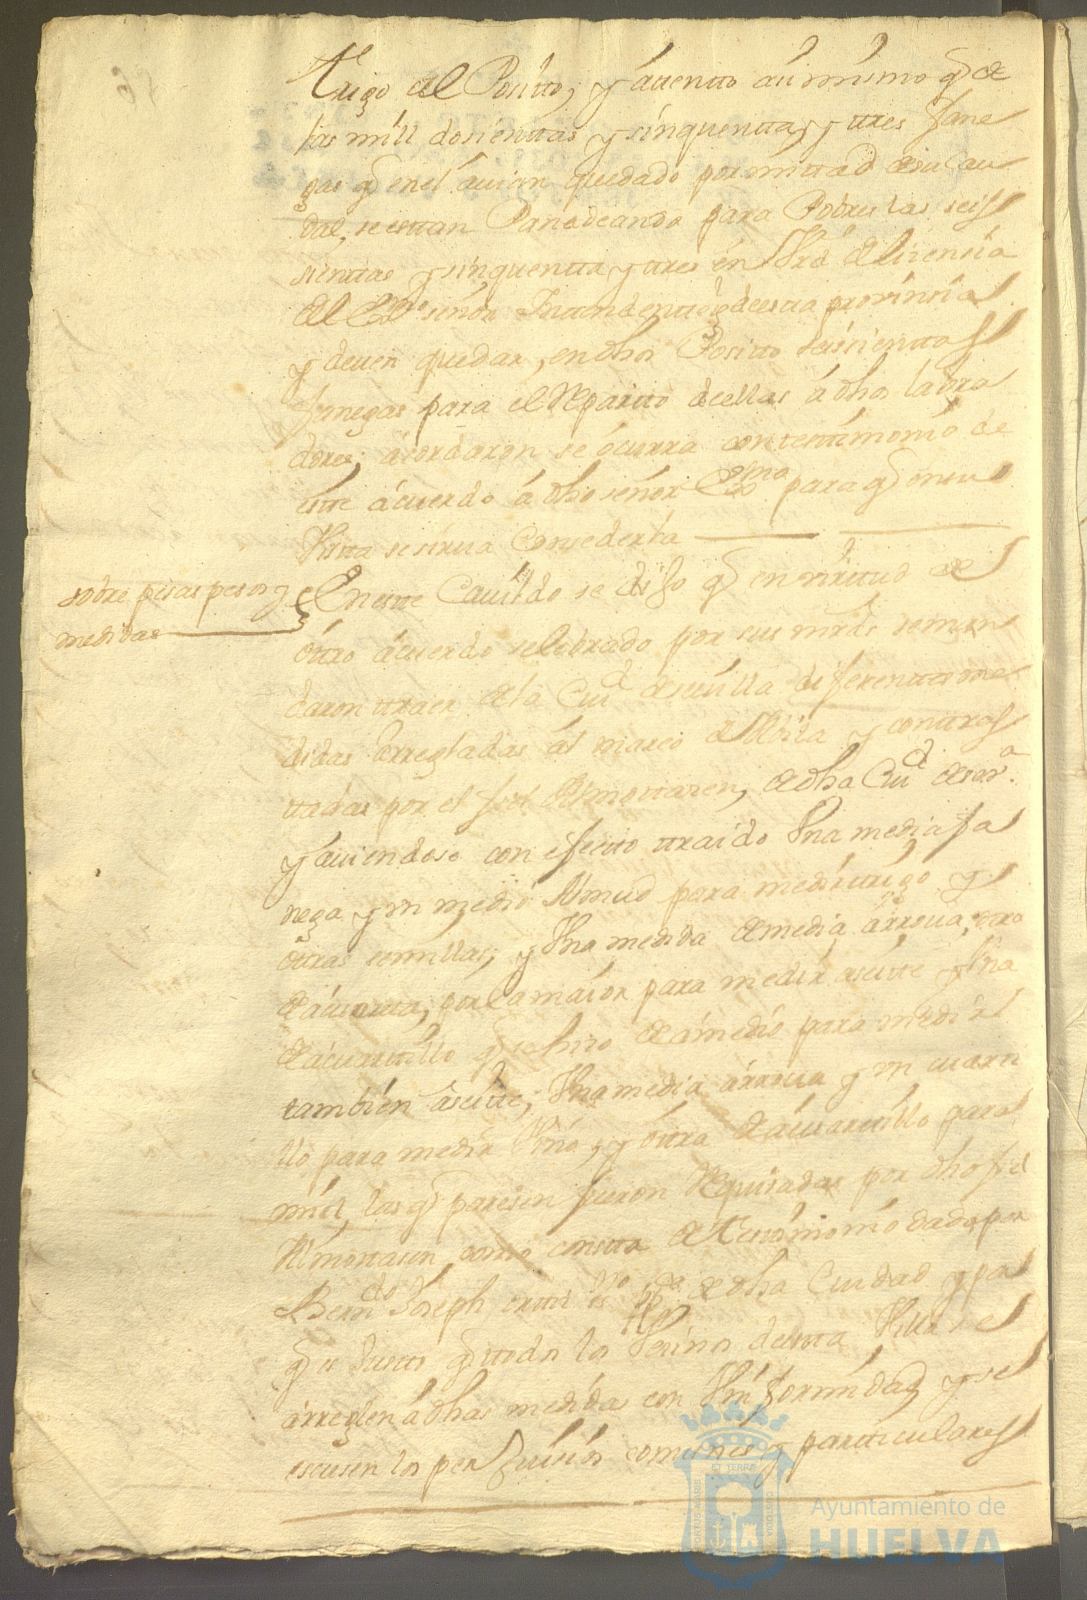 trigo al Posito, y atentto asimismo q̃ de
las mill dosienttas y sinquentta, y ttres fane
gas q̃ en el avian quedado por mittad de su cau
dal, se esttan Panadeando para Pobres las seis
sienttas y sinquentta y ttres en Vrd. de lisensia
del Exmo señor Inttendentte de estta provinsia
y deven quedar, en dho Positto seiscienttas
fanegas para el Repartto de ellas á dhos labra
dores, acordaron se ocurra con testtimonio de
estte acuerdo á dho señor Exmo para q̃ en su
Vistta se sirva Consederla
sobre pesas pesos y
medidas
En estte Cavildo se dijo q̃ en virttud de
ottro acuerdo selebrado por sus mrds. se man
daron ttraer de la Ciud. de sevilla diferenttes me
didas arregladas al marco de Abila y conttras
ttadas por el fiel Almottasen, de dha Ciud.
y aviendose con efectto ttraido Vna media fa
nega y un medio Almud para medir ttrigo y
ottras semillas, y Vna medida de media arrova, ottra
de a quartta, por la maior para medir aseitte y Vna
de a cuarttillo q̃ se hizo de a medio para medir
tambien aseitte; Vna media arrova y un cuartti
llo para medir Vino, y ottra de a cuarttillo para
miel, las q̃ paresen fueron Requisadas por dho fiel
Almottasen como constta de Testtimonio dado por
Berndo Joseph Orttiz es.no pp.co de dha Ciudad y pa
q̃ ttodos los Vesinos de estta Villa se
arreglen á dhas medidas con Vniformidad y se
escusen los perjuisios comunes y particulares
Ayuntamiento de
HUELVA